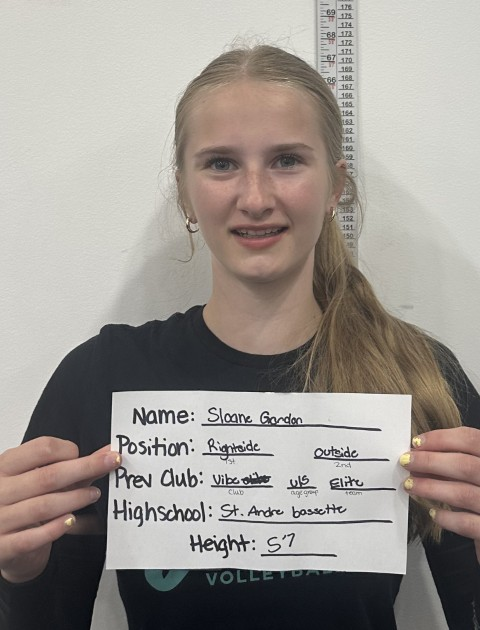 69
176
175
174
173
68
172
171
67
170
169
168
66
167
166
165
164
163
162
161
160
159
153
152
151
150
Name: Sloane Gordon
Position: Rightside Outside
1st 2nd
Prev Club: Vibe U15 Elite
Club age group team
Highschool: St. Andre bassette
Height: 5'7
VOLLEYBAL